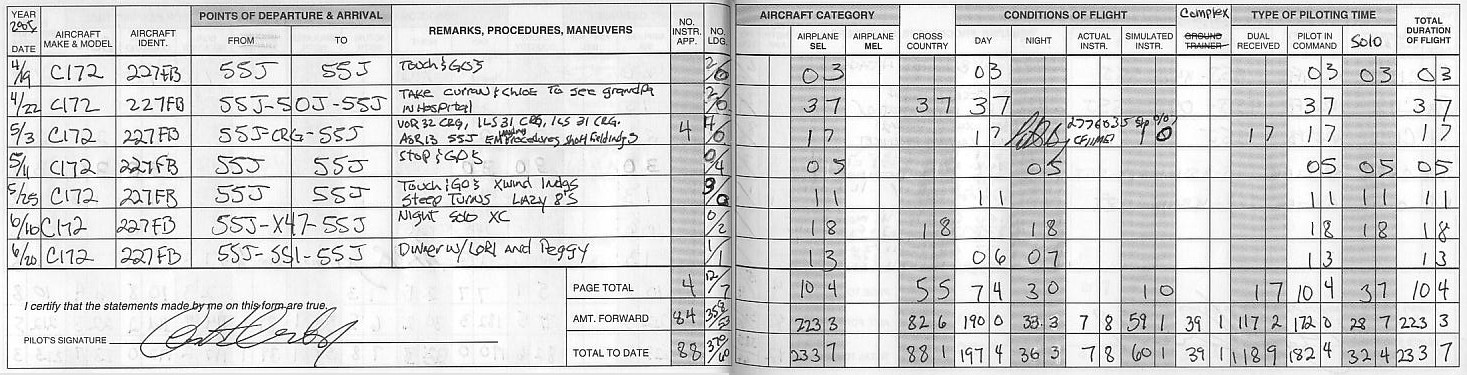 YEAR 2005 POINTS OF DEPARTURE & ARRIVAL AIRCRAFT CATEGORY CONDITIONS OF FLIGHT Complex TYPE OF PILOTING TIME
DATE AIRCRAFT MAKE & MODEL AIRCRAFT IDENT. FROM TO REMARKS, PROCEDURES, MANEUVERS NO. INSTR. APP. NO. LDG. AIRPLANE SEL AIRPLANE MEL CROSS COUNTRY DAY NIGHT ACTUAL INSTR. SIMULATED INSTR. GROUND TRAINER DUAL RECEIVED PILOT IN COMMAND SOLO TOTAL DURATION OF FLIGHT
4/19 C172 227FB 55J 55J Touch & GO's 2/0 0 3 0 3 0 3 0 3 0 3
4/22 C172 227FB 55J-50J-55J TAKE Curran & Chloe To see grandpa in Hospital 2/0 3 7 3 7 3 7 3 7 3 7
5/3 C172 227FB 55J-CRG-55J VOR 32 CRG, ILS 31 CRG, ILS 31 CRG. ASR 13 55J EM procedures short field ldgs 4 4/0 1 7 1 7 2776035 CFIIME 1 0 1 7 1 7 1 7
5/11 C172 227FB 55J 55J Stop & GO's 0/4 0 5 0 5 0 5 0 5 0 5
5/25 C172 227FB 55J 55J Touch & GO's Xwind lndgs Steep Turns LAZY 8'S 3/0 1 1 1 1 1 1 1 1 1 1
6/10 C172 227FB 55J-X47-55J Night solo XC 0/2 1 8 1 8 1 8 1 8 1 8 1 8
6/20 C172 227FB 55J-SSI-55J Dinner w/ LORI and Peggy 1/1 1 3 0 6 0 7 1 3 1 3
PAGE TOTAL 4 12/7 10 4 5 5 7 4 3 0 1 0 1 7 10 4 3 7 10 4
I certify that the statements made by me on this form are true.
AMT. FORWARD 84 358/53 223 3 82 6 190 0 33 3 7 8 59 1 39 1 117 2 172 0 28 7 223 3
PILOT'S SIGNATURE
TOTAL TO DATE 88 370/60 233 7 88 1 197 4 36 3 7 8 60 1 39 1 118 9 182 4 32 4 233 7